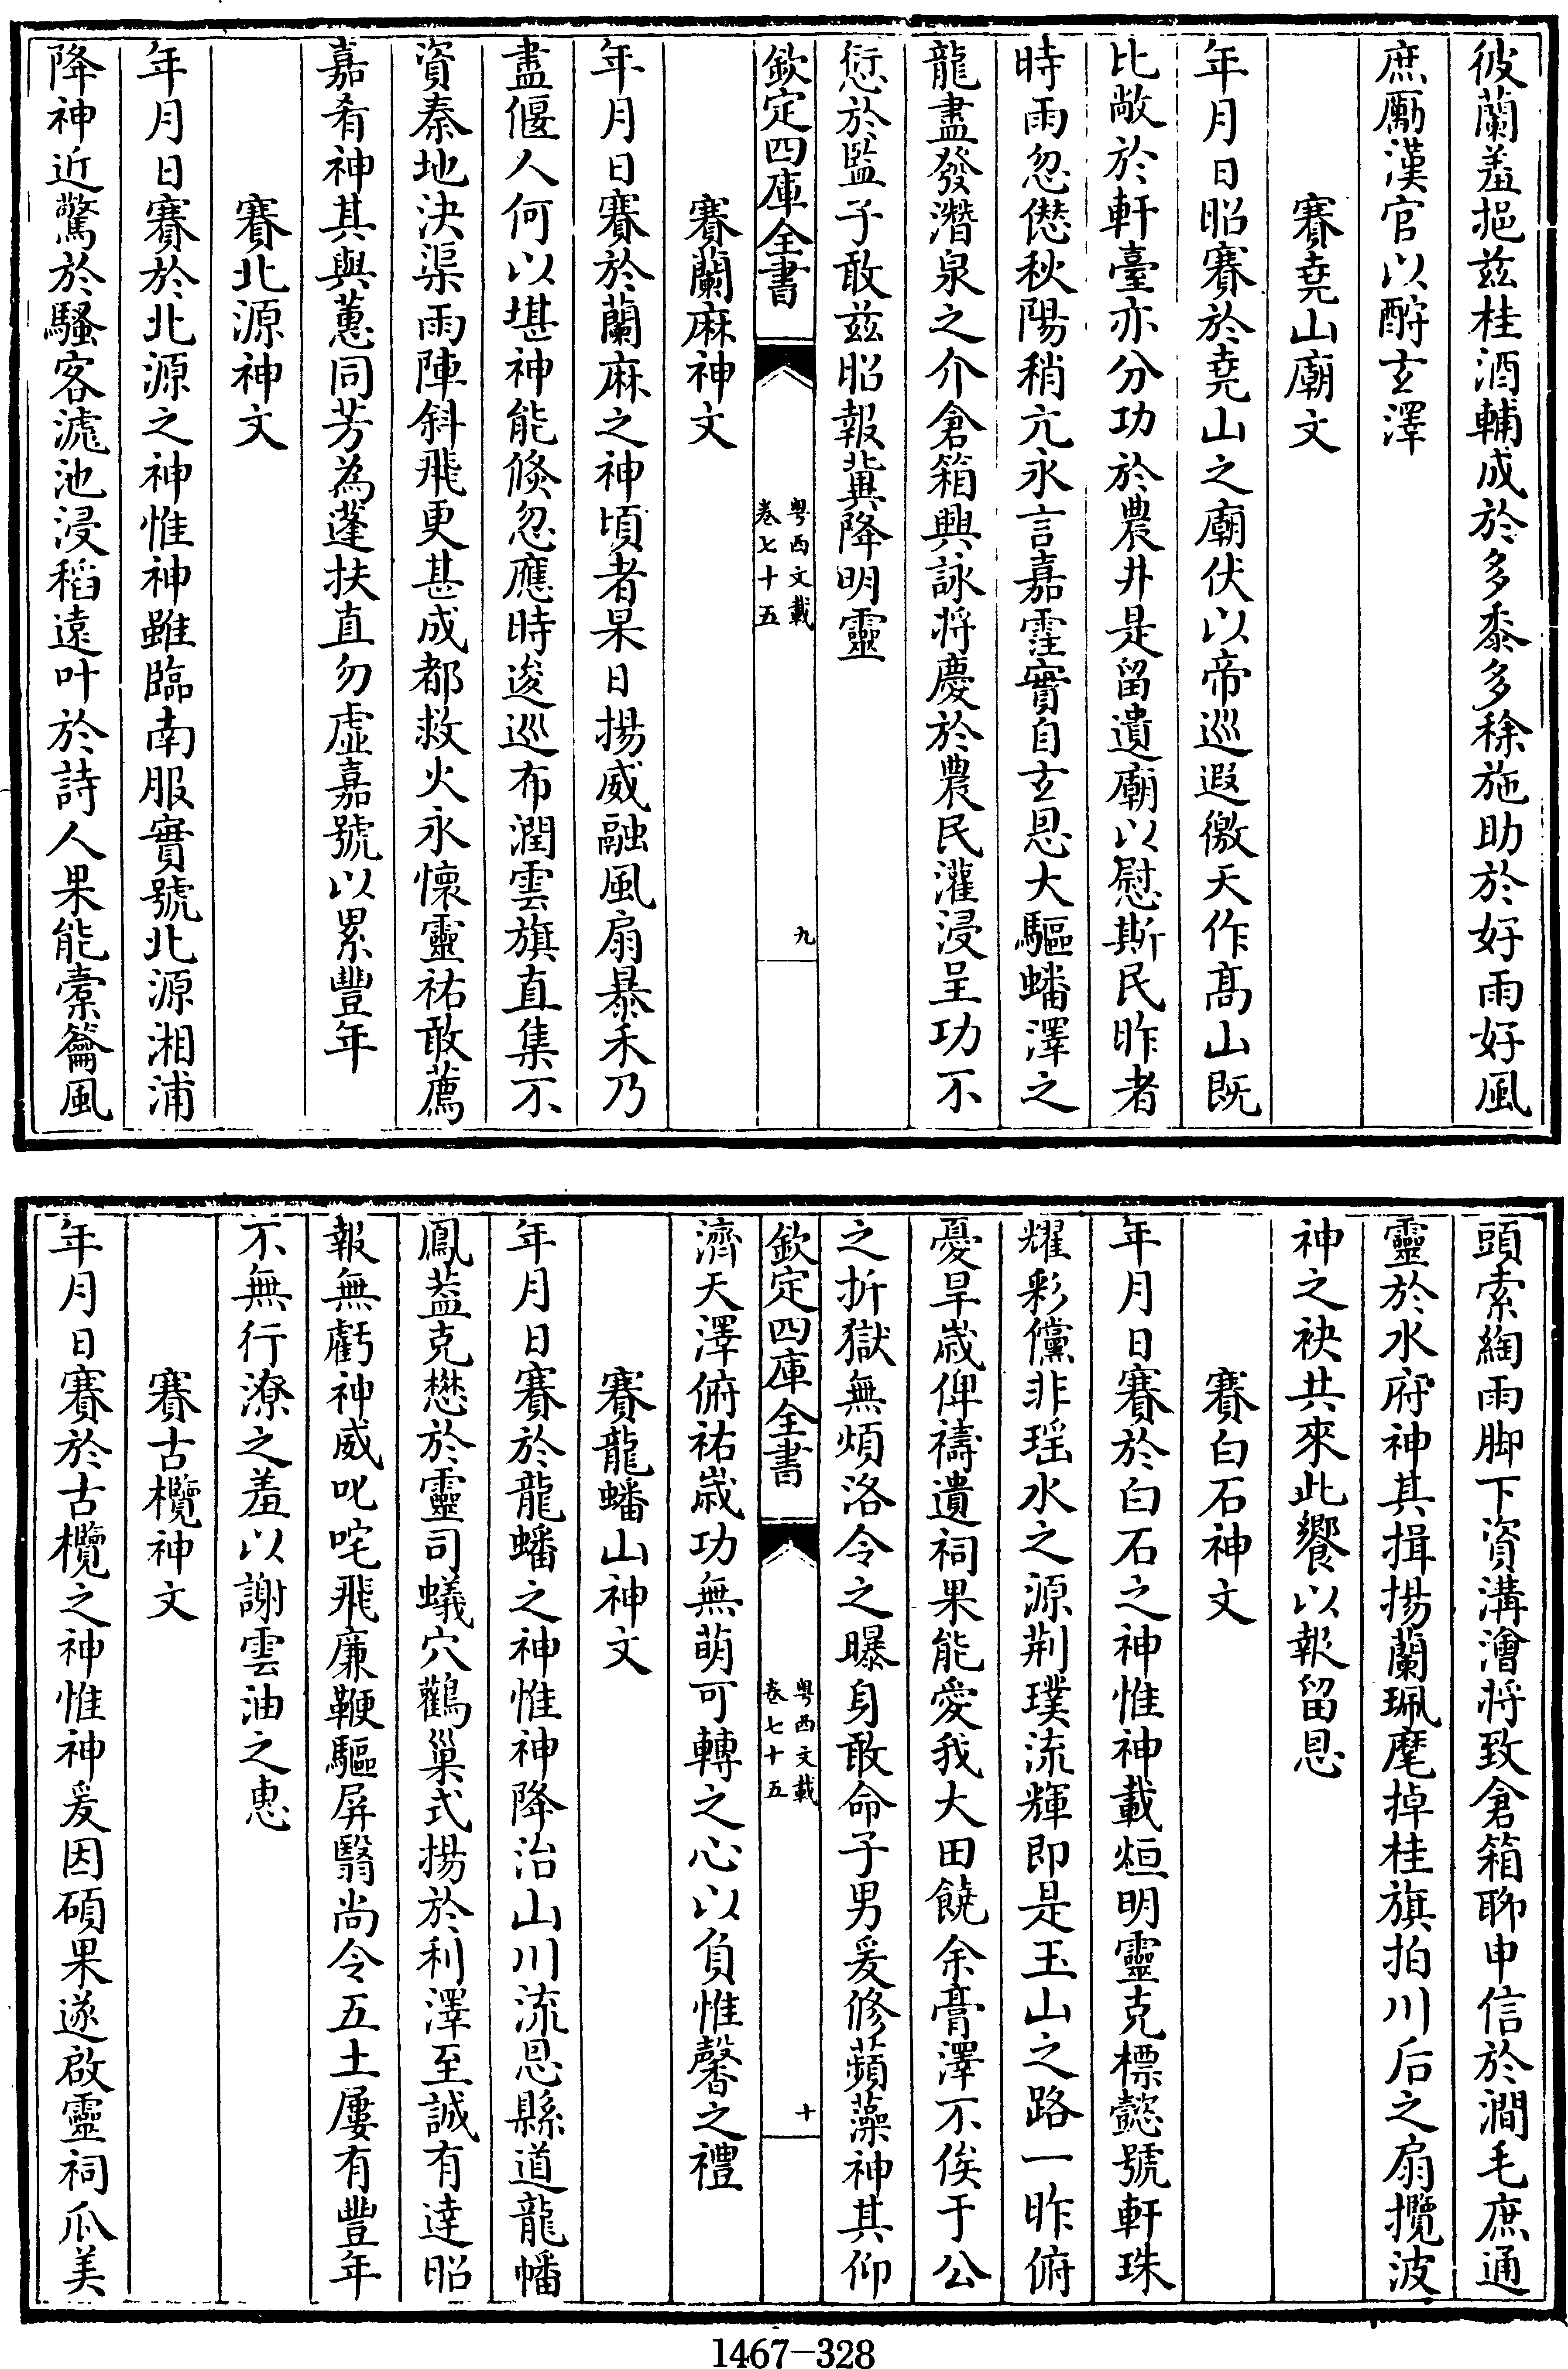 彼蘭羞挹兹桂酒輔成於多黍多稌施助於好雨好風
庶勵漢官以酹玄澤
賽堯山廟文
年月日昭賽於堯山之廟伏以帝巡遐徼天作高山既
比敞於軒臺亦分功於農井是留遺廟以慰斯民昨者
時雨忽愆秋陽稍亢永言嘉霔實自玄恩大驅蟠澤之
龍盡發潛泉之介倉箱興詠將慶於農民灌浸呈功不
愆於監子敢兹昭報冀降明靈
欽定四庫全書
粤西文載
卷七十五
九
賽蘭麻神文
年月日賽於蘭麻之神頃者杲日揚威融風扇暴禾乃
盡偃人何以堪神能倏忽應時逡巡布潤雲旗直集不
資秦地決渠雨陣斜飛更甚成都救火永懷靈祐敢薦
嘉肴神其與蕙同芳為蓬扶直勿虚嘉號以累豐年
賽北源神文
年月日賽於北源之神惟神雖臨南服實號北源湘浦
降神近驚於騷客滮池浸稻遠叶於詩人果能橐籥風
頭索綯雨脚下資溝澮將致倉箱聊申信於澗毛庶通
靈於水府神其揖揚蘭珮麾掉桂旗拍川后之扇攬波
神之袂共來此饗以報留恩
賽白石神文
年月日賽於白石之神惟神載烜明靈克標懿號軒珠
耀彩儻非瑶水之源荆璞流輝即是玉山之路一昨俯
憂旱歳俾禱遺祠果能愛我大田饒余膏澤不俟于公
之折獄無煩洛令之曝身敢命子男爰修蘋藻神其仰
欽定四庫全書
粤西文載
卷七十五
十
濟天澤俯祐歳功無萌可轉之心以負惟馨之禮
賽龍蟠山神文
年月日賽於龍蟠之神惟神降治山川流恩縣道龍幡
鳳葢克懋於靈司蟻穴鸛巢式揚於利澤至誠有達昭
報無虧神威叱咤飛廉鞭驅屏翳尚令五土屢有豐年
不無行潦之羞以謝雲油之惠
賽古欖神文
年月日賽於古欖之神惟神爰因碩果遂啟靈祠瓜美
1467-328